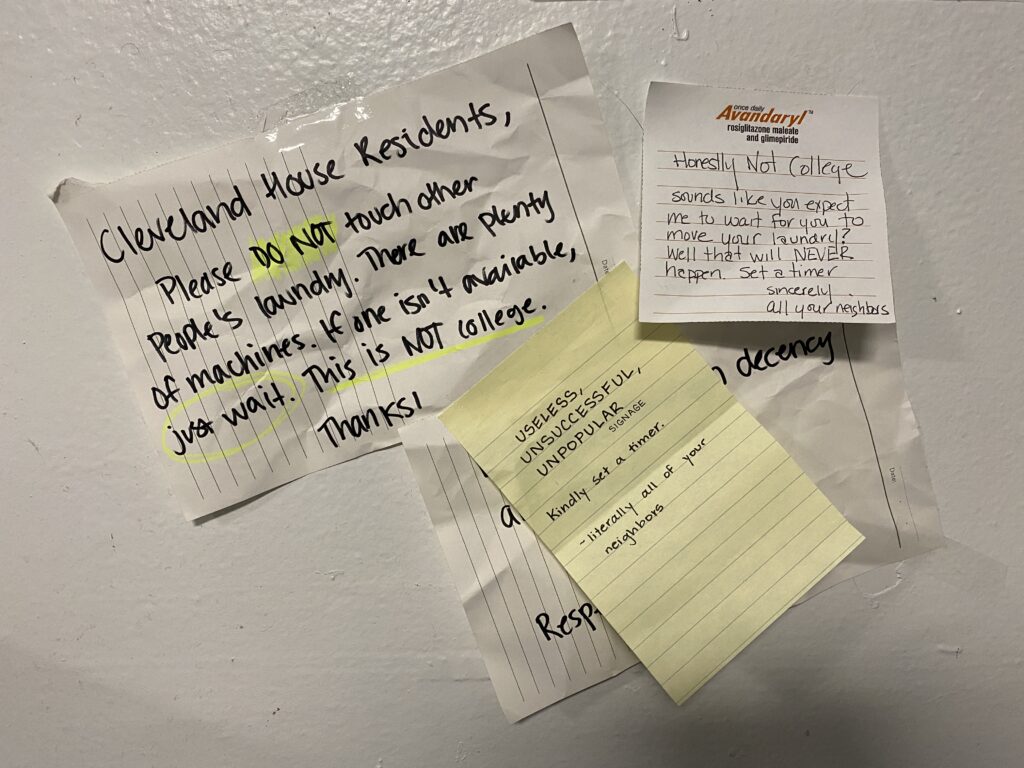 Cleveland House Residents,
Please DO NOT touch other
People's laundry. There are plenty
of machines. If one isn't available,
just wait. This is NOT college.
Thanks!
once daily
Avandaryl™
rosiglitazone maleate
and glimepiride
Honestly Not College
sounds like you expect
me to wait for you to
move your laundry?
Well that will NEVER
happen. Set a timer
sincerely
all your neighbors
decency
USELESS,
UNSUCCESSFUL,
UNPOPULAR
SIGNAGE
Kindly set a timer.
-literally all of your
neighbors
a
Resp
Date: